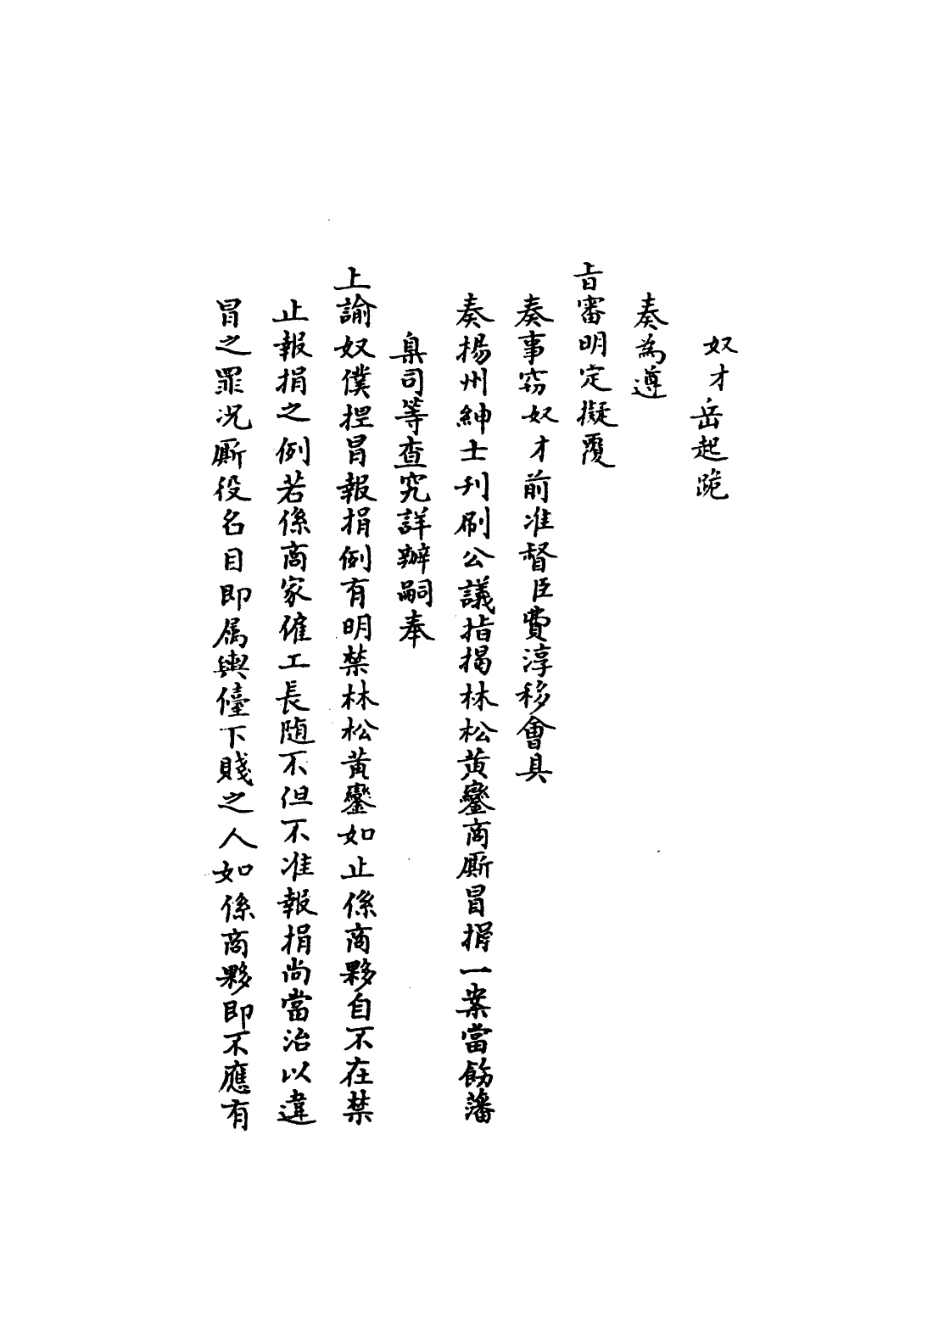 奴才岳起跪
奏為遵
旨審明定擬覆
奏事窃奴才前准督臣費淳移會具
奏揚州紳士刋刷公議指揭林松黄鑾商厮冒捐一案當飭藩
臬司等查究詳辦嗣奉
上諭奴僕捏冒報捐例有明禁林松黄鑾如止係商夥自不在禁
止報捐之例若係商家僱工長随不但不准報捐尚當治以違
冒之罪况厮役名目即属輿儓下賤之人如係商夥即不應有